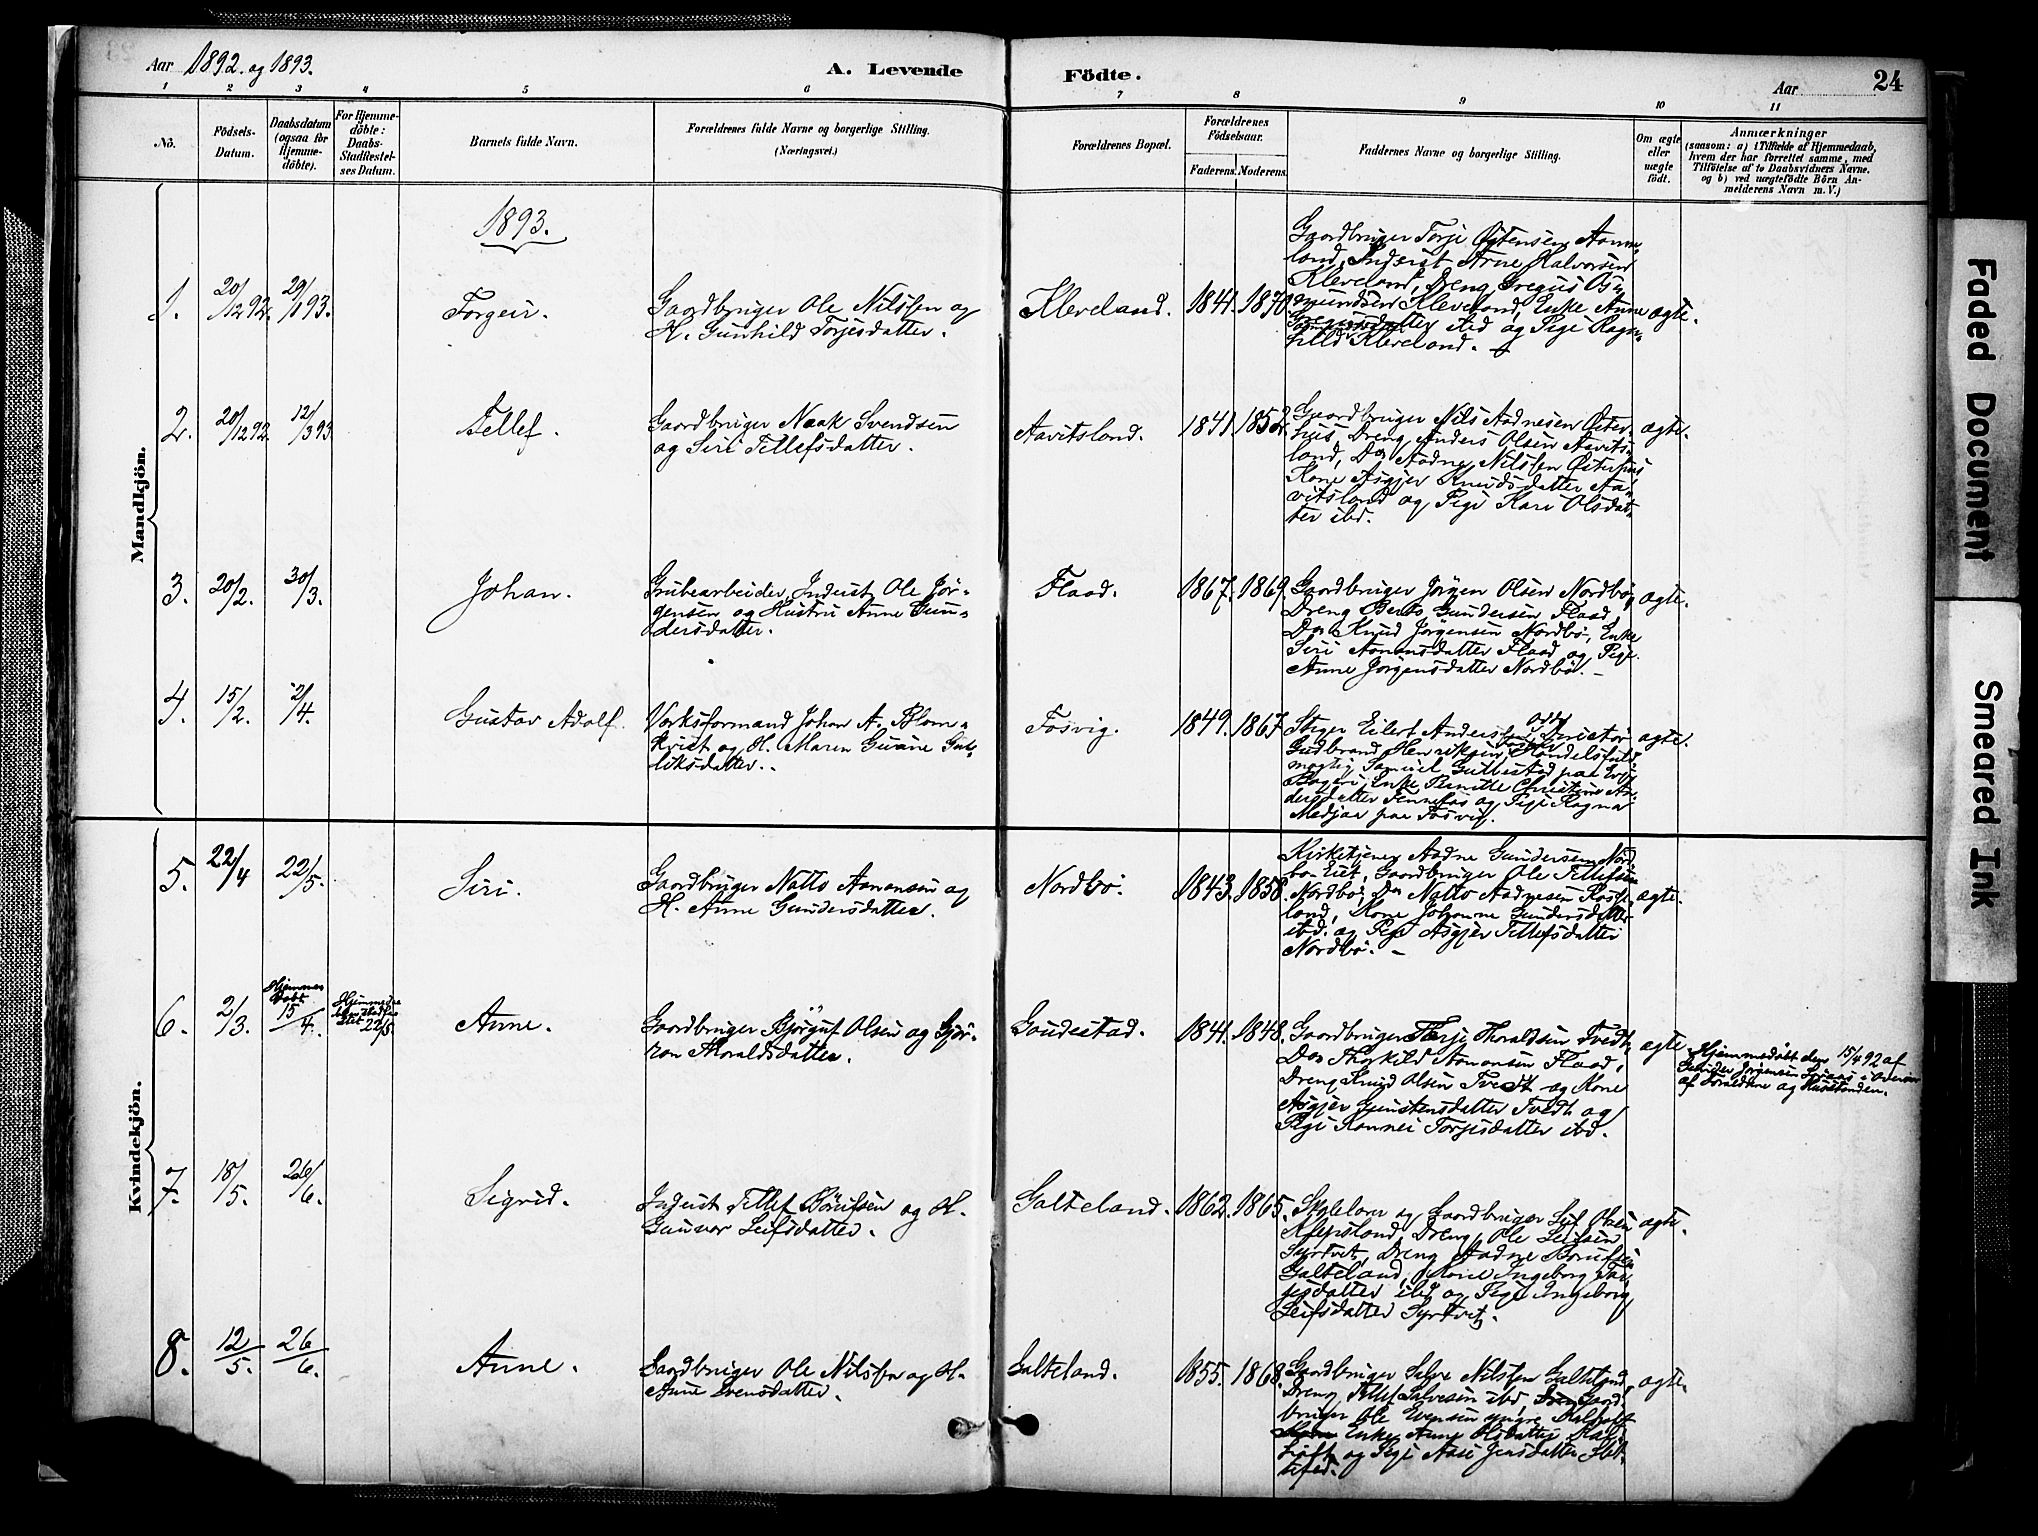 Aar 1892. og 1893.
A. Levende Födte.
Aar
24
1 2 3 4 5 6 7 8 9 10 11
No.
Födsels-
Datum.
Daabsdatum
(ogsaa for
Hjemme-
döbte).
For Hjemme-
döbte:
Daabs-
Stadfæstel-
ses Datum.
Barnets fulde Navn.
Forældrenes fulde Navne og borgerlige Stilling.
(Næringsvei.)
Forældrenes Bopæl.
Forældrenes
Födselsaar.
Faderens. Moderens.
Faddernes Navne og borgerlige Stilling.
Om ægte
eller
uægte
födt.
Anmærkninger
(saasom: a) i Tilfælde af Hjemmedaab,
hvem der har forrettet samme, med
Tilföielse af to Daabsvidners Navne.
og b) ved uægtefödte Börn An-
melderens Navn m. V.)
Mandkjön.
1893.
1. 20/12 92. 29/1 93.
Torgeir.
Gaardbruger Ole Nilssen og
H. Gunhild Torjesdatter.
Kleveland. 1841. 1870.
Gaardbruger Torje Østensen
land, Inderst Arne Halvorsen
Kleveland, Dreng
Kleveland, Enke Anne
ibd og Pige
Kleveland.
ægte.
2. 20/12 92. 12/3 93
Tellef.
Gaardbruger Naak Svendsen
og Siri Tellefsdatter.
Aavitsland. 1841. 1852.
Gaardbruger Nils Aadnesen Øster-
hus, Dreng Anders Olsen Aavits-
land, Do Aadne Nilssen Østerhus
Kone Asgjer Knudsdatter Aa-
vitsland og Pige Kari Olsdat-
ter ibd.
ægte.
3. 20/2. 30/3.
Johan.
Grubearbeider, Inderst Ole Jör-
gensen og Hustru Anne Gun-
dersdatter.
Flaad. 1867. 1869.
Gaardbruger Jörgen Olsen Nordbö,
Dreng Gundersen Flaad,
Do Knud Jörgensen Nordbö, Enke
Siri Aanensdatter Flaad og Pige
Anne Jörgensdatter Nordbö.
ægte.
4. 15/2. 2/4.
Gustav Adolf.
Værksformand Johan A. Blom-
kvist og H. Maren Gurine Gul-
liksdatter.
Fosvig. 1849. 1867.
Stiger Eilert Anderssen,
Gudbrand Henriksen, Handelsfuld-
mægtig Samuel Gullestad paa
Enke Pernille Christine An-
dersdatter og Pige Ragna
paa Fosvig.
ægte.
Kvindekjön.
5. 22/4 22/5.
Siri.
Gaardbruger Natto Aanonsen og
H. Anne Gundersdatter.
Nordbö. 1843. 1858.
Kirketjener Aadne Gundersen Nord-
bö Eiet, Gaardbruger Ole Tellefsen
Nordbö, Do Natto Aadnesen Rosse-
land, Kone Johanne Gundersdatter
ibd. og Pige Asgjer Tellefsdatter
Nordbö.
ægte.
6. 2/3. Hjemme-
döbt 15/4. 22/5
Anne.
Gaardbruger Björguf Olsen og Gjör-
ron Thoraldsdatter.
Gaudestad. 1841. 1848.
Gaardbruger Terje Thoraldsen Tvedt,
Do Thorkild Aanonsen Flaad,
Dreng Knud Olsen Tvedt og Kone
Asgjer Gunstensdatter Tvedt og
Pige Ronnei Torjesdatter ibd.
ægte
Hjemmedöbt den 15/4 92 af
Gunder Jörgensen
af Forældrene og Husstanden.
7. 18/5. 26/6.
Sigrid.
Inderst Tellef Börufsen og H.
Gunvor Leifsdatter.
Galteland. 1862. 1865.
og Gaardbruger Leif Olsen
Klepsland, Dreng Ole Leifsen
Syrtvet, Dreng Aadne Börufsen
Galteland, Kone Ingeborg Tor-
jesdatter ibd og Pige Ingeborg
Leifsdatter Syrtvet.
ægte.
8. 12/5. 26/6.
Anne.
Gaardbruger Ole Nilssen og H.
Anne Evensdatter.
Galteland. 1855. 1868.
Gaardbruger Salve Nilssen Galteland,
Dreng Tellef Salvesen ibd, Gaard-
bruger Ole Evensen yngre
Enke Anne Olsdatter
og Pige Aase Jensdatter
ægte.
Faded Document
Smeared Ink